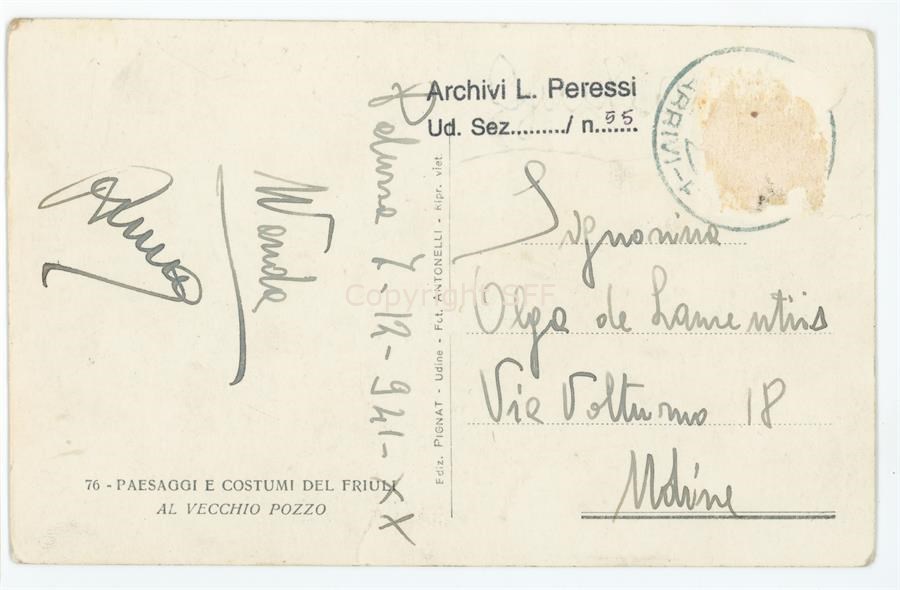 Archivi L. Peressi
Ud. Sez........./ n.55
ARRIVI
Palma 7-12-941-XX
Wanda
Signorina
Olga de Laurentiis
Via Volturno 18
Udine
Ediz. PIGNAT - Udine - Fot. ANTONELLI - Ripr. viet.
76 - PAESAGGI E COSTUMI DEL FRIULI
AL VECCHIO POZZO
Copyright SFF